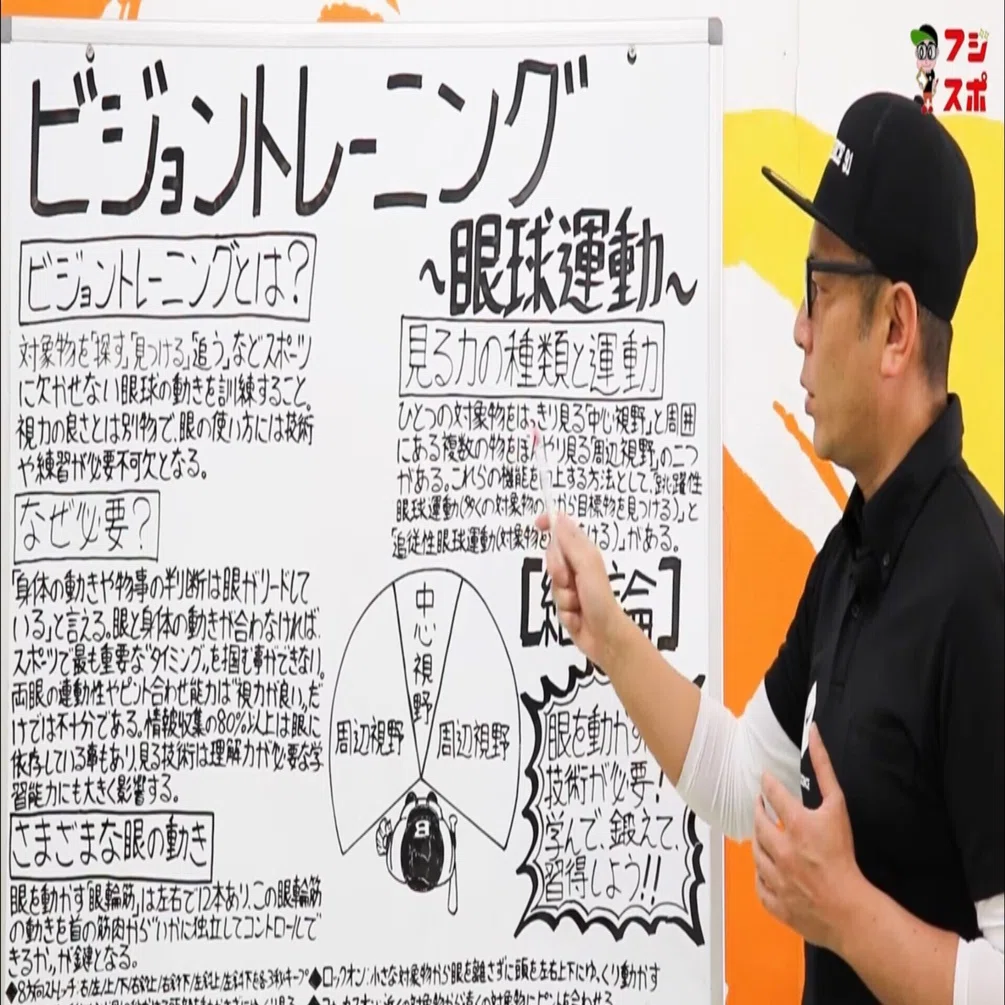 ビジョントレーニング
~眼球運動~
ビジョントレーニングとは?
対象物を「探す」「見つける」「追う」などスポーツ
に欠かせない眼球の動きを訓練すること。
視力の良さとは別物で、眼の使い方には技術
や練習が必要不可欠となる。
なぜ必要?
「身体の動きや物事の判断は眼がリードして
いる」と言える。眼と身体の動きが合わなければ、
スポーツで最も重要な"タイミング"を掴む事ができない。
両眼の連動性やピント合わせ能力は"視力が良い"だ
けでは不十分である。情報収集の80%以上は眼に
依存している事もあり、見る技術は理解力が必要な学
習能力にも大きく影響する。
さまざまな眼の動き
眼を動かす「眼輪筋」は左右で12本あり、この眼輪筋
の動きを首の筋肉から"いかに独立してコントロールで
きるか"が鍵となる。
見る力の種類と運動
ひとつの対象物をはっきり見る「中心視野」と周囲
にある複数の物をぼんやり見る「周辺視野」の二つ
がある。これらの機能を 上する方法として、「跳躍性
眼球運動(多くの対象物の から目標物を見つける)」と
「追従性眼球運動(対象物を ける)」がある。
中心視野
周辺視野
周辺視野
8
[結論]
眼を動かす
技術が必要!
学んで、鍛えて、
習得しよう!!
◆8方向ストレッチ:右/左/上/下/右斜上/右斜下/左斜上/左斜下を各3秒キープ
◆ロックオン:小さな対象物から眼を離さずに頭を左右上下にゆっくり動かす
フジ
スポ
91